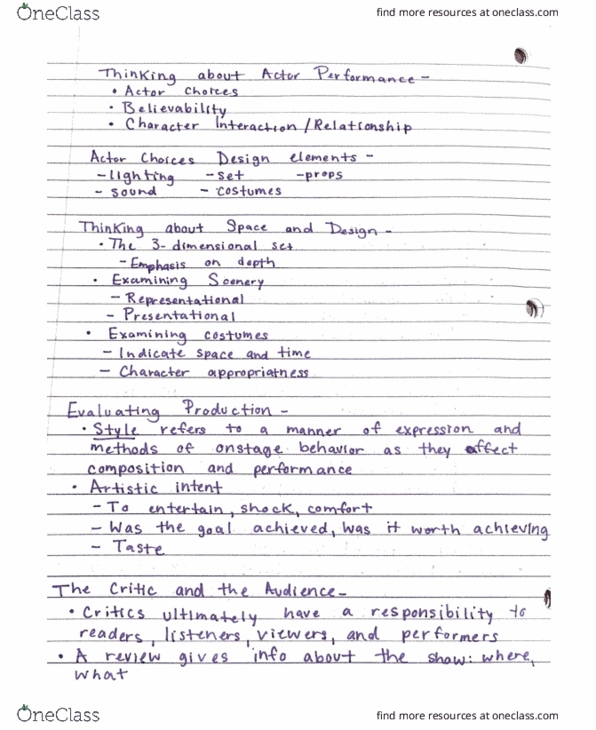 OneClass
find more resources at oneclass.com
Thinking about Actor Performance -
• Actor Choices
• Believability
• Character Interaction/Relationship
Actor Choices Design elements -
- lighting - set - props
- sound - costumes
Thinking about Space and Design -
• The 3-dimensional set
- Emphasis on depth
• Examining Scenery
- Representational
- Presentational
• Examining costumes
- Indicate space and time
- Character appropriatness
Evaluating Production -
• Style refers to a manner of expression and
methods of onstage behavior as they affect
composition and performance
• Artistic intent
- To entertain, shock, comfort
- Was the goal achieved, was it worth achieving
- Taste
The Critic and the Audience -
• Critics ultimately have a responsibility to
readers, listeners, viewers, and performers
• A review gives info about the show: where,
what
OneClass
find more resources at oneclass.com